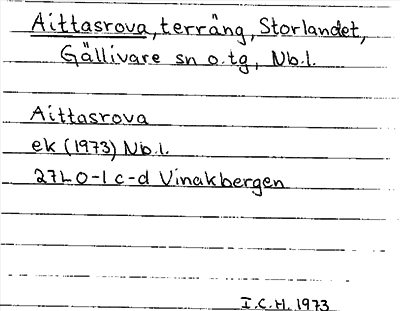 Aittasrova, terräng, Storlandet,
Gällivare sn o. tg, Nb.l.
Aittasrova
ek (1973) Nb.l.
27L 0-1 c-d Vinakbergen
I.C.H. 1973